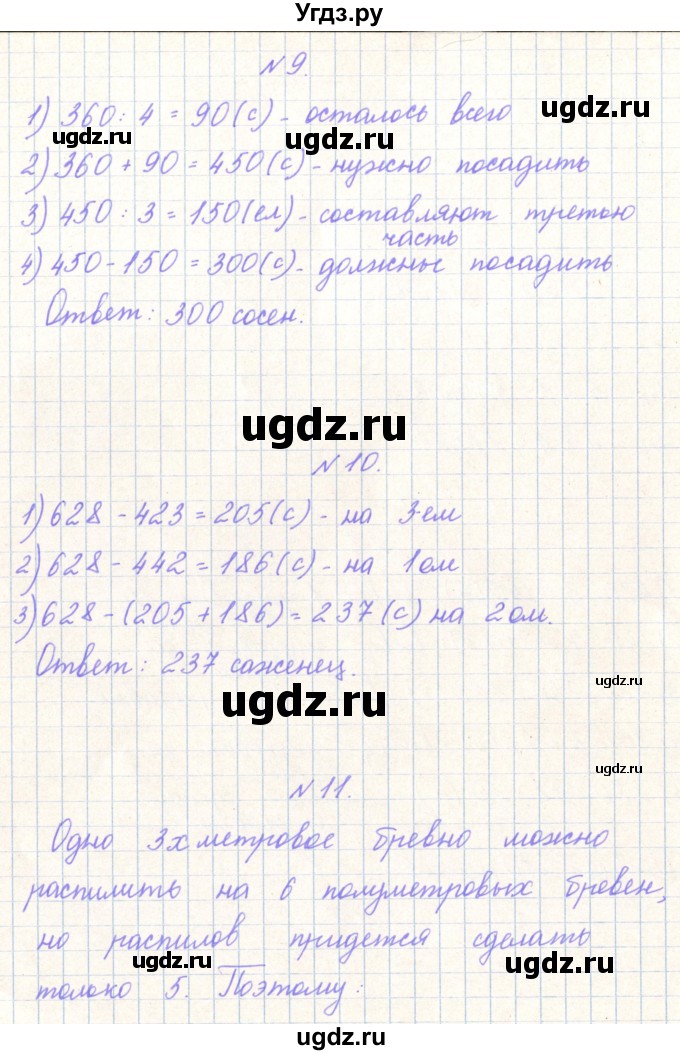 Угдз.ру
№9.
1) 360 : 4 = 90(с) - осталось всего
ugdz.ru ugdz.ru ugdz.ru
2) 360 + 90 = 450(с) - нужно посадить
3) 450 : 3 = 150(ел) - составляют третью
часть
4) 450 - 150 = 300(с) - должны посадить
ugdz.ru
Ответ: 300 сосен.
ugdz.ru
№10.
1) 628 - 423 = 205(с) - на 3-ем
2) 628 - 442 = 186(с) - на 1ом
3) 628 - (205 + 186) = 237(с) на 2ом.
Ответ: 237 саженец.
ugdz.ru
ugdz.ru
ugdz.ru
№11.
Одно 3х метровое бревно можно
распилить на 6 полуметровых бревен,
но распилов придется сделать
ugdz.ru ugdz.ru
только 5. Поэтому:
ugdz.ru